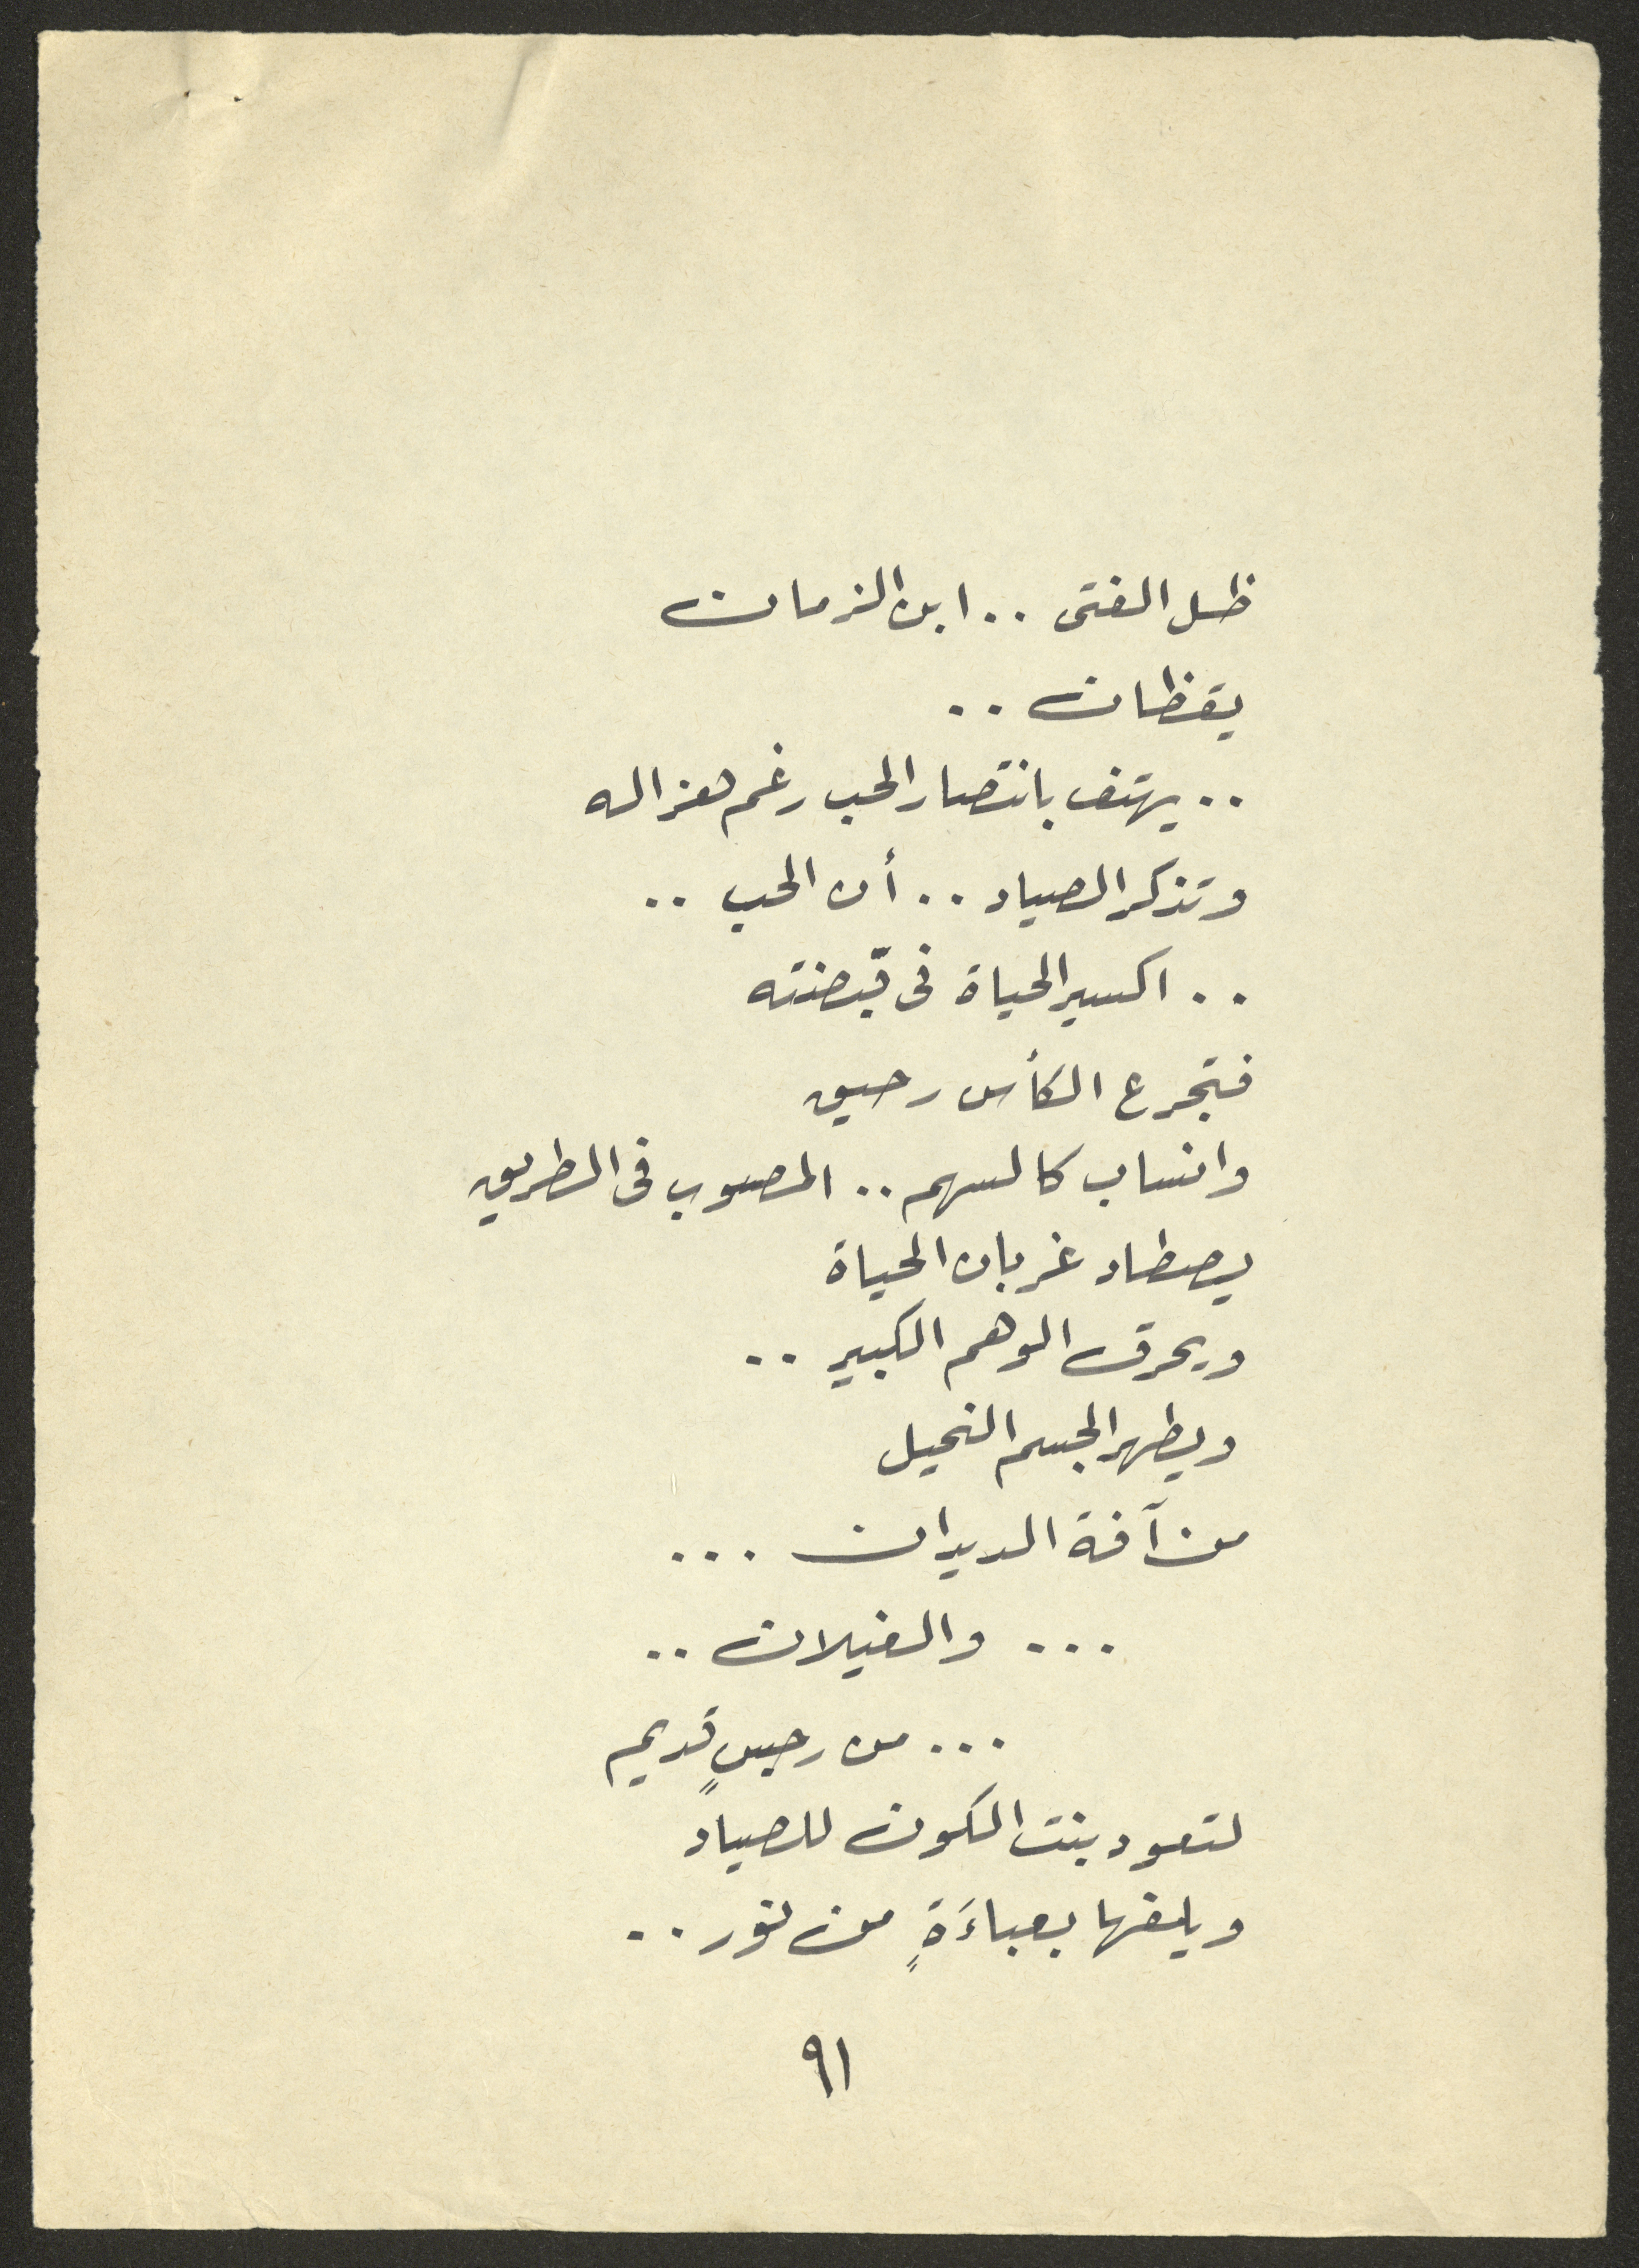 ظل الفتى .. ابن الزمان
يقظان ..
.. يهتف بانتصار الحب رغم هزاله
وتذكر الصياد .. أن الحب ..
.. اكسير الحياة فى قبضته
فتجرع الكأس رحيق
وانساب كالسهم .. المصوب فى الطريق
يصطاد غربان الحياة
ويحرق الوهم الكبير ..
ويطهر الجسم النحيل
من آفة الديدان ...
... والغيلان ..
... من رجسٍ قديم
لتعود بنت الكون للصياد
ويلفها بعباءَةٍ من نور ..
٩١